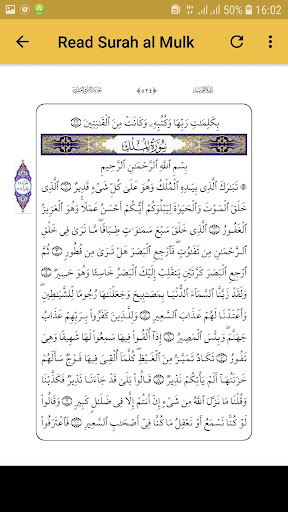 16:02
50%
Read Surah al Mulk
بِكَلِمَٰتِ رَبِّهَا وَكُتُبِهِۦ وَكَانَتْ مِنَ ٱلْقَٰنِتِينَ ١٢
سُورَةُ المُلْكِ
بِسْمِ ٱللَّهِ ٱلرَّحْمَٰنِ ٱلرَّحِيمِ
۞ تَبَٰرَكَ ٱلَّذِى بِيَدِهِ ٱلْمُلْكُ وَهُوَ عَلَىٰ كُلِّ شَىْءٍ قَدِيرٌ ١ ٱلَّذِى
خَلَقَ ٱلْمَوْتَ وَٱلْحَيَوٰةَ لِيَبْلُوَكُمْ أَيُّكُمْ أَحْسَنُ عَمَلًا ۚ وَهُوَ ٱلْعَزِيزُ
ٱلْغَفُورُ ٢ ٱلَّذِى خَلَقَ سَبْعَ سَمَٰوَٰتٍ طِبَاقًا ۖ مَّا تَرَىٰ فِى خَلْقِ
ٱلرَّحْمَٰنِ مِن تَفَٰوُتٍ ۖ فَٱرْجِعِ ٱلْبَصَرَ هَلْ تَرَىٰ مِن فُطُورٍ ٣ ثُمَّ
ٱرْجِعِ ٱلْبَصَرَ كَرَّتَيْنِ يَنقَلِبْ إِلَيْكَ ٱلْبَصَرُ خَاسِئًا وَهُوَ حَسِيرٌ ٤
وَلَقَدْ زَيَّنَّا ٱلسَّمَآءَ ٱلدُّنْيَا بِمَصَٰبِيحَ وَجَعَلْنَٰهَا رُجُومًا لِّلشَّيَٰطِينِ ۖ
وَأَعْتَدْنَا لَهُمْ عَذَابَ ٱلسَّعِيرِ ٥ وَلِلَّذِينَ كَفَرُوا۟ بِرَبِّهِمْ عَذَابُ
جَهَنَّمَ ۖ وَبِئْسَ ٱلْمَصِيرُ ٦ إِذَآ أُلْقُوا۟ فِيهَا سَمِعُوا۟ لَهَا شَهِيقًا وَهِىَ
تَفُورُ ٧ تَكَادُ تَمَيَّزُ مِنَ ٱلْغَيْظِ ۖ كُلَّمَآ أُلْقِىَ فِيهَا فَوْجٌ سَأَلَهُمْ
خَزَنَتُهَآ أَلَمْ يَأْتِكُمْ نَذِيرٌ ٨ قَالُوا۟ بَلَىٰ قَدْ جَآءَنَا نَذِيرٌ فَكَذَّبْنَا
وَقُلْنَا مَا نَزَّلَ ٱللَّهُ مِن شَىْءٍ إِنْ أَنتُمْ إِلَّا فِى ضَلَٰلٍ كَبِيرٍ ٩ وَقَالُوا۟
لَوْ كُنَّا نَسْمَعُ أَوْ نَعْقِلُ مَا كُنَّا فِىٓ أَصْحَٰبِ ٱلسَّعِيرِ ١٠ فَٱعْتَرَفُوا۟